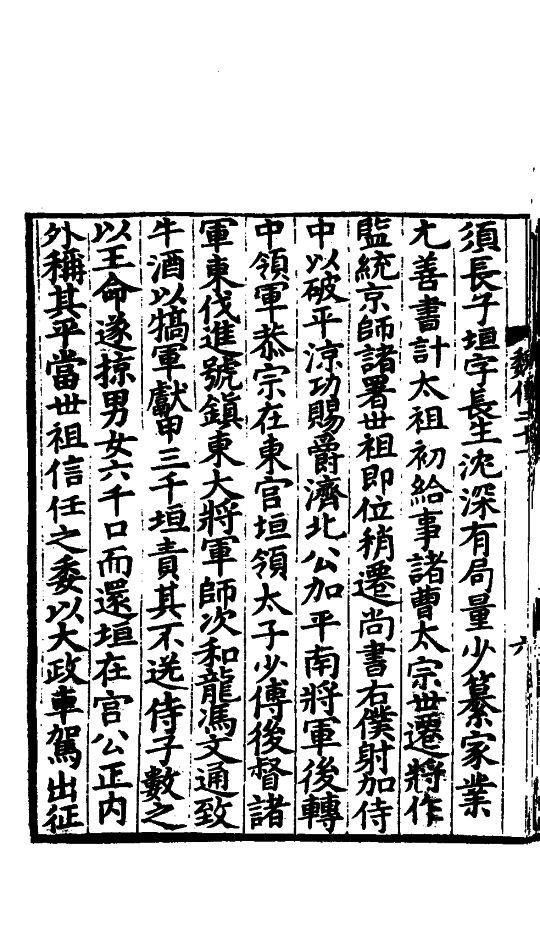 須長子垣字長生沈深有局量少纂家業
尤善書計太祖初給事諸曹太宗世遷將作
監統京師諸署世祖即位稍遷尚書右僕射加侍
中以破平涼功賜爵濟北公加平南將軍後轉
中領軍恭宗在東宮垣領太子少傅後督諸
軍東伐進號鎮東大將軍師次和龍馮文通致
牛酒以犒軍獻甲三千垣責其不送侍子數之
以王命遂掠男女六千口而還垣在官公正內
外稱其平當世祖信任之委以大政車駕出征
六